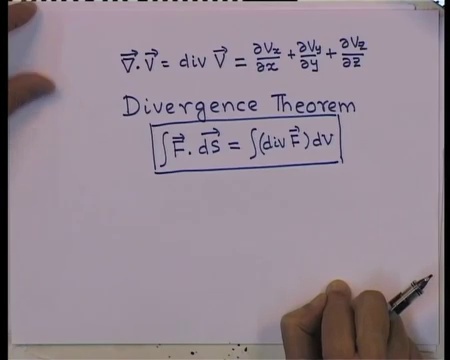 ∇⃗.V⃗ = div V⃗ = ∂Vx/∂x + ∂Vy/∂y + ∂Vz/∂z
Divergence Theorem
∫F⃗.dS⃗ = ∫(div F⃗)dV